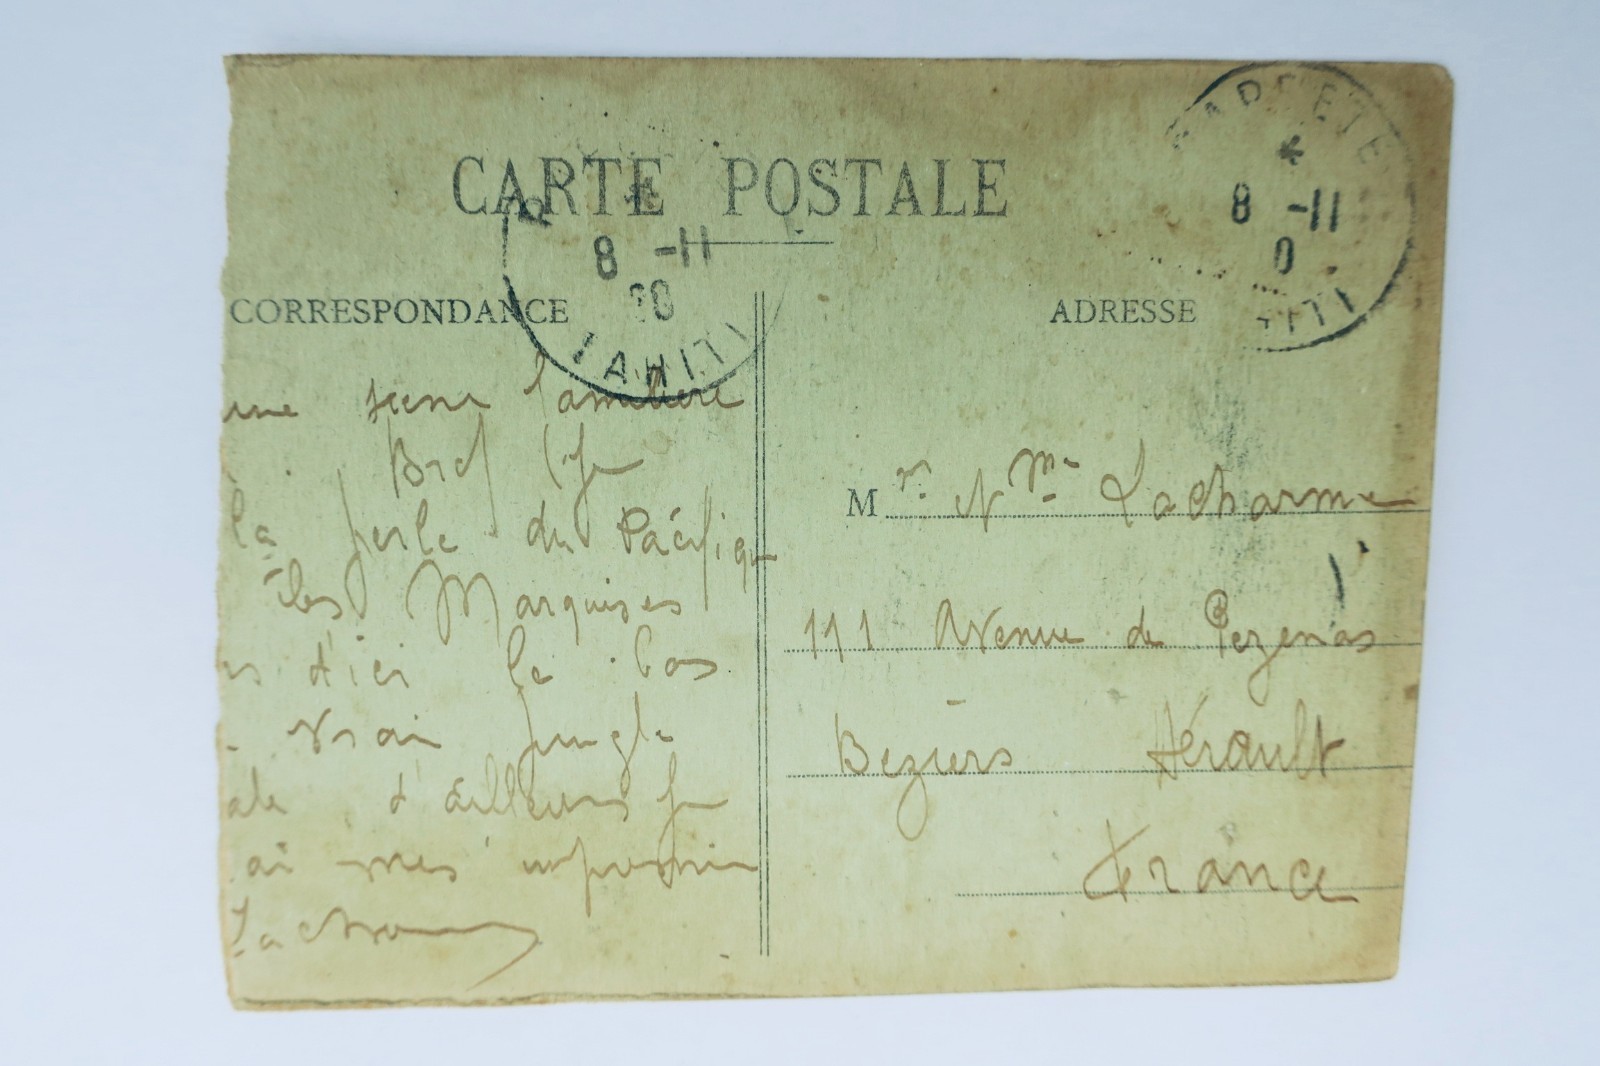 CARTE POSTALE
PAPEETE
8 -11
0
TAHITI
8 -11
TAHITI
CORRESPONDANCE
ADRESSE
une scene familiere
Bref
la perle du Pacifique
les Marquises
d'ici le bas
vrai jungle
d'ailleurs
ai mes
Lacharme
Mr. Mme Lacharme
111 Avenue de Pezenas
Beziers Herault
France